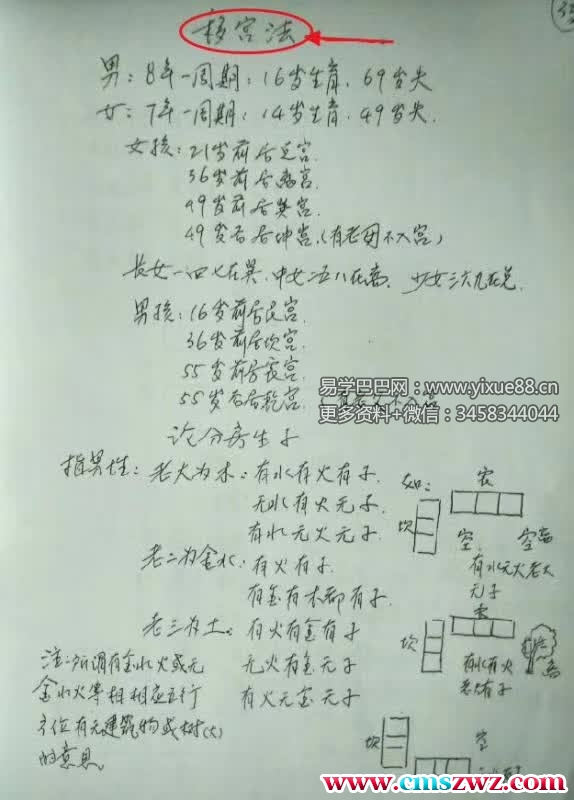 移宫法
男：8年一周期：16岁生育，69岁失
女：7年一周期：14岁生育，49岁失.
女孩：21岁前居兑宫.
36岁前居离宫
49岁前居巽宫.
49岁后居坤宫.(有老母不入宫)
长女一四七在巽、中女二五八在离、少女三六九在兑.
男孩：16岁前居艮宫.
36岁前居坎宫.
55岁前居震宫.
55岁后居乾宫.
易学巴巴网：www.yixue88.cn
更多资料+微信：3458344044
论分房生子
指男性：老大为木：有水有火有子.
无水有火无子.
有水无火无子.
老二为金水：有火有子.
有金有木都有子.
老三为土：有火有金有子
无火有金无子
有火无金无子
注：所谓有金水火或无
金水火等相相应五行
方位有无建筑物或树(大)
的意思。
如：
坎
空
空离
有水无火老大
无子
坎
离
有水有火
老大有子
坎
空
www.cmszwz.com